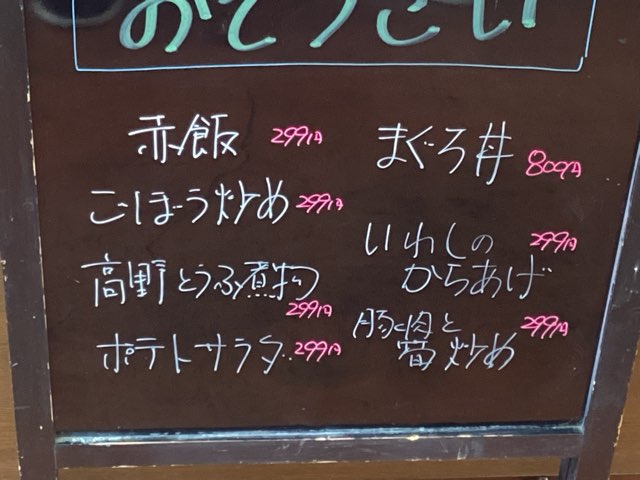 おそうざい
赤飯 299円
ごぼう炒め 299円
高野とうふ煮物
299円
ポテトサラダ 299円
まぐろ丼 800円
いわしの 299円
からあげ
豚肉と 299円
筍炒め